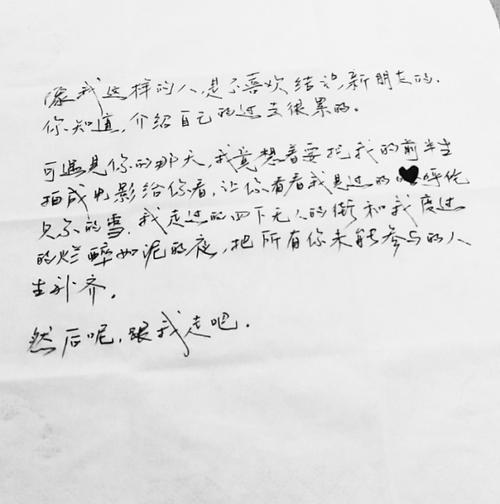 像我这样的人,是不喜欢结识新朋友的.
你知道,介绍自己的过去很累的.
可遇见你的那天,我竟想着要把我的前半生
拍成电影给你看,让你看看我见过的♥呼伦
贝尔的雪,我走过的四下无人的街和我度过
的烂醉如泥的夜,把所有你未能参与的人
生补齐.
然后呢,跟我走吧.